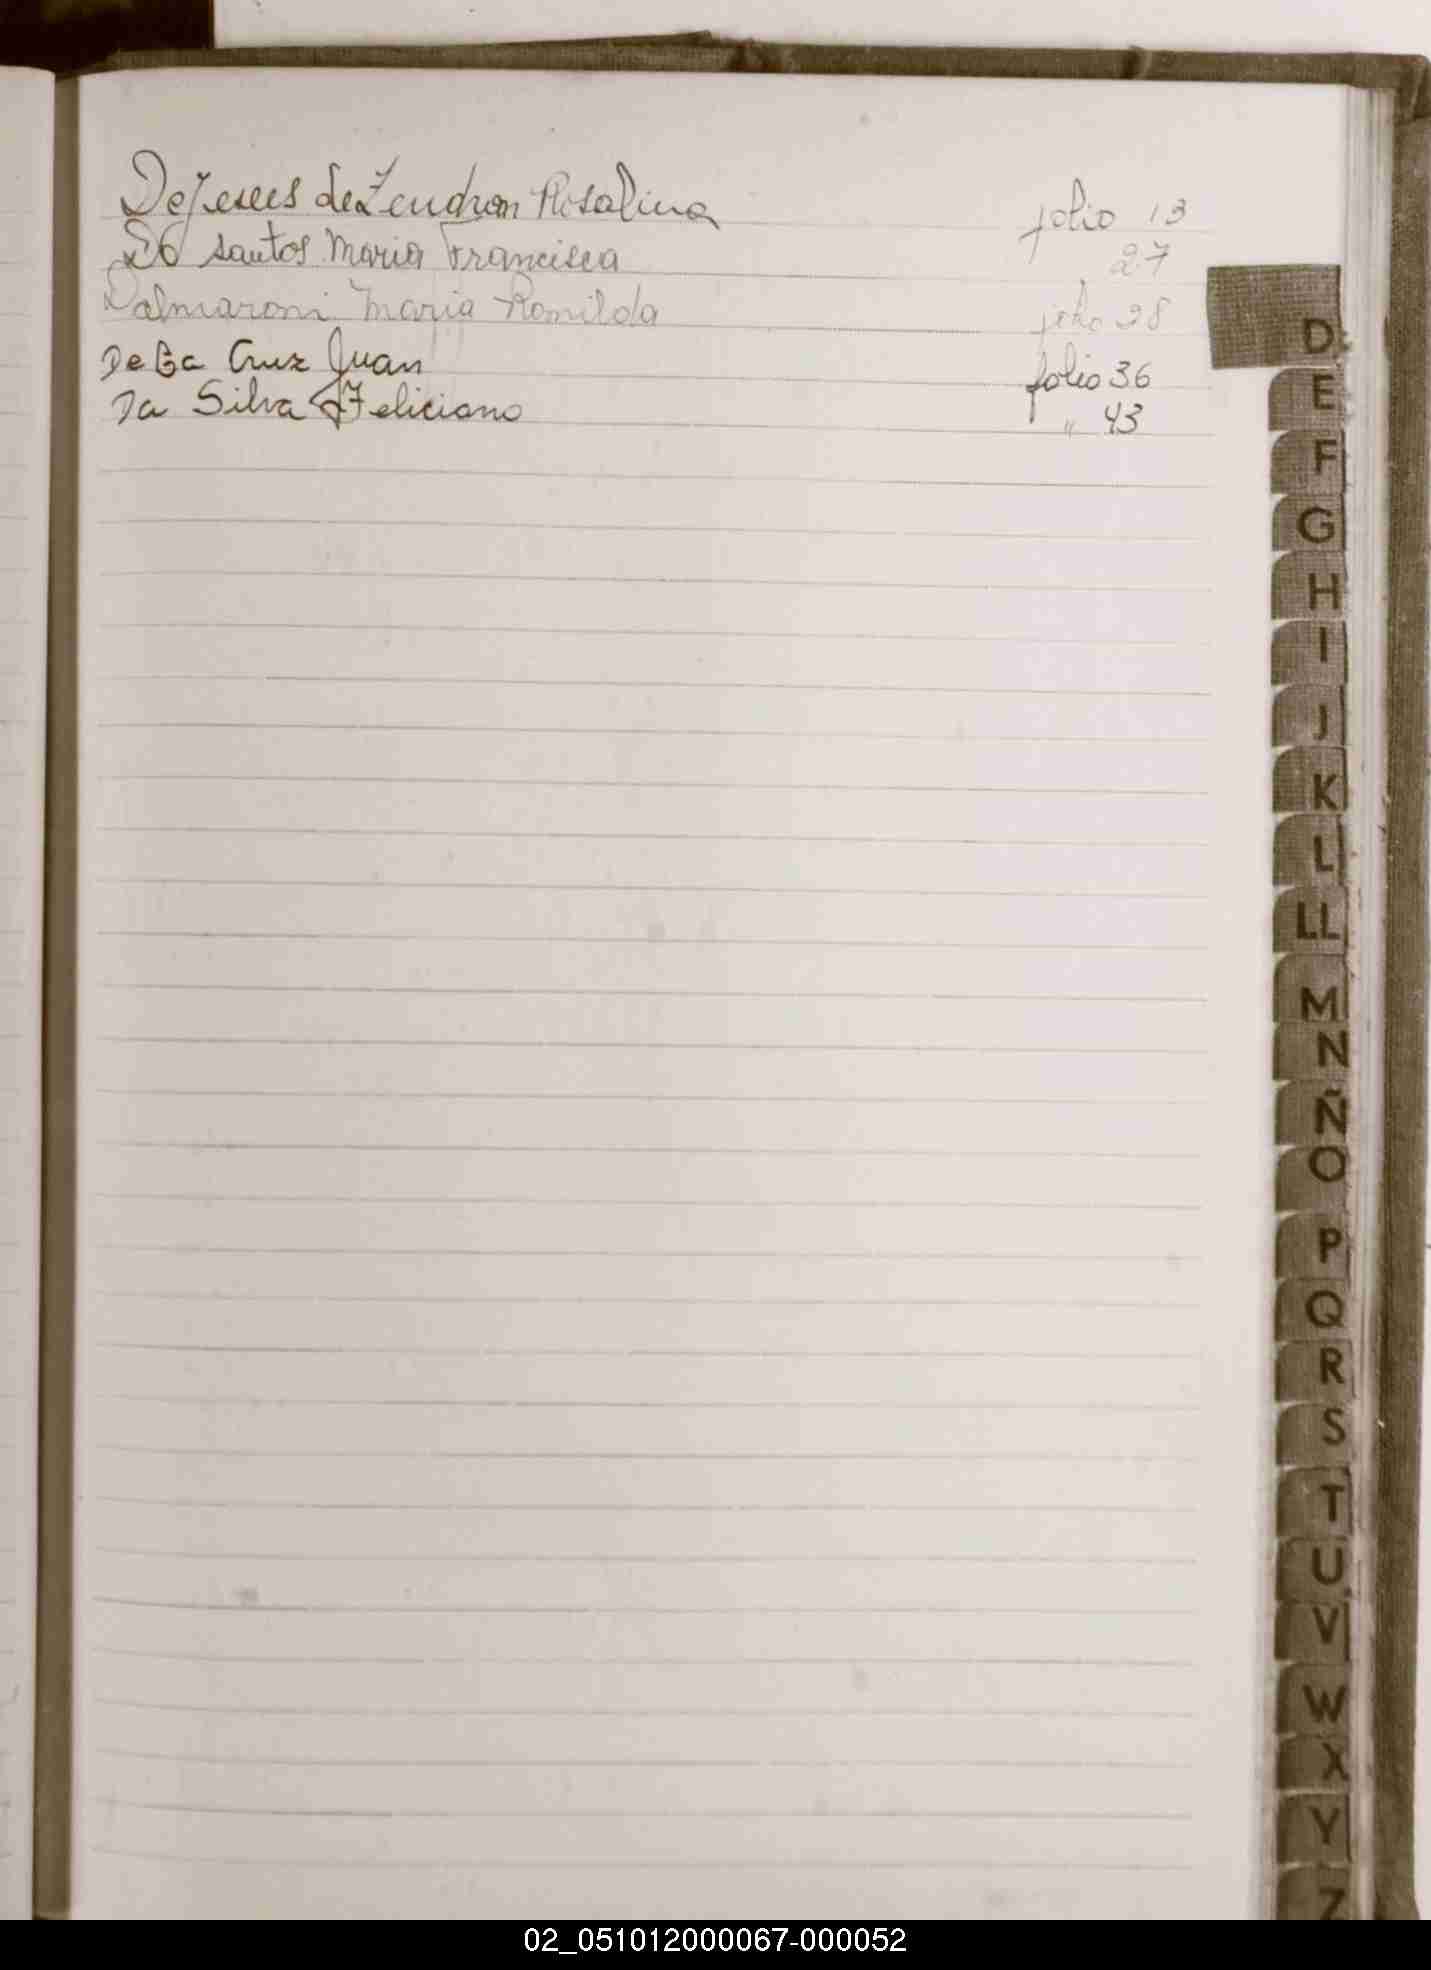 De Jesus de Zendron Rosalina folio 13
Do santos Maria Francisca 27
Dalmaroni Maria Romilda folio 28
De La Cruz Juan folio 36
Da Silva Feliciano " 43
D
E
F
G
H
I
J
K
L
LL
M
N
Ñ
O
P
Q
R
S
T
U
V
W
X
Y
Z
02_051012000067-000052